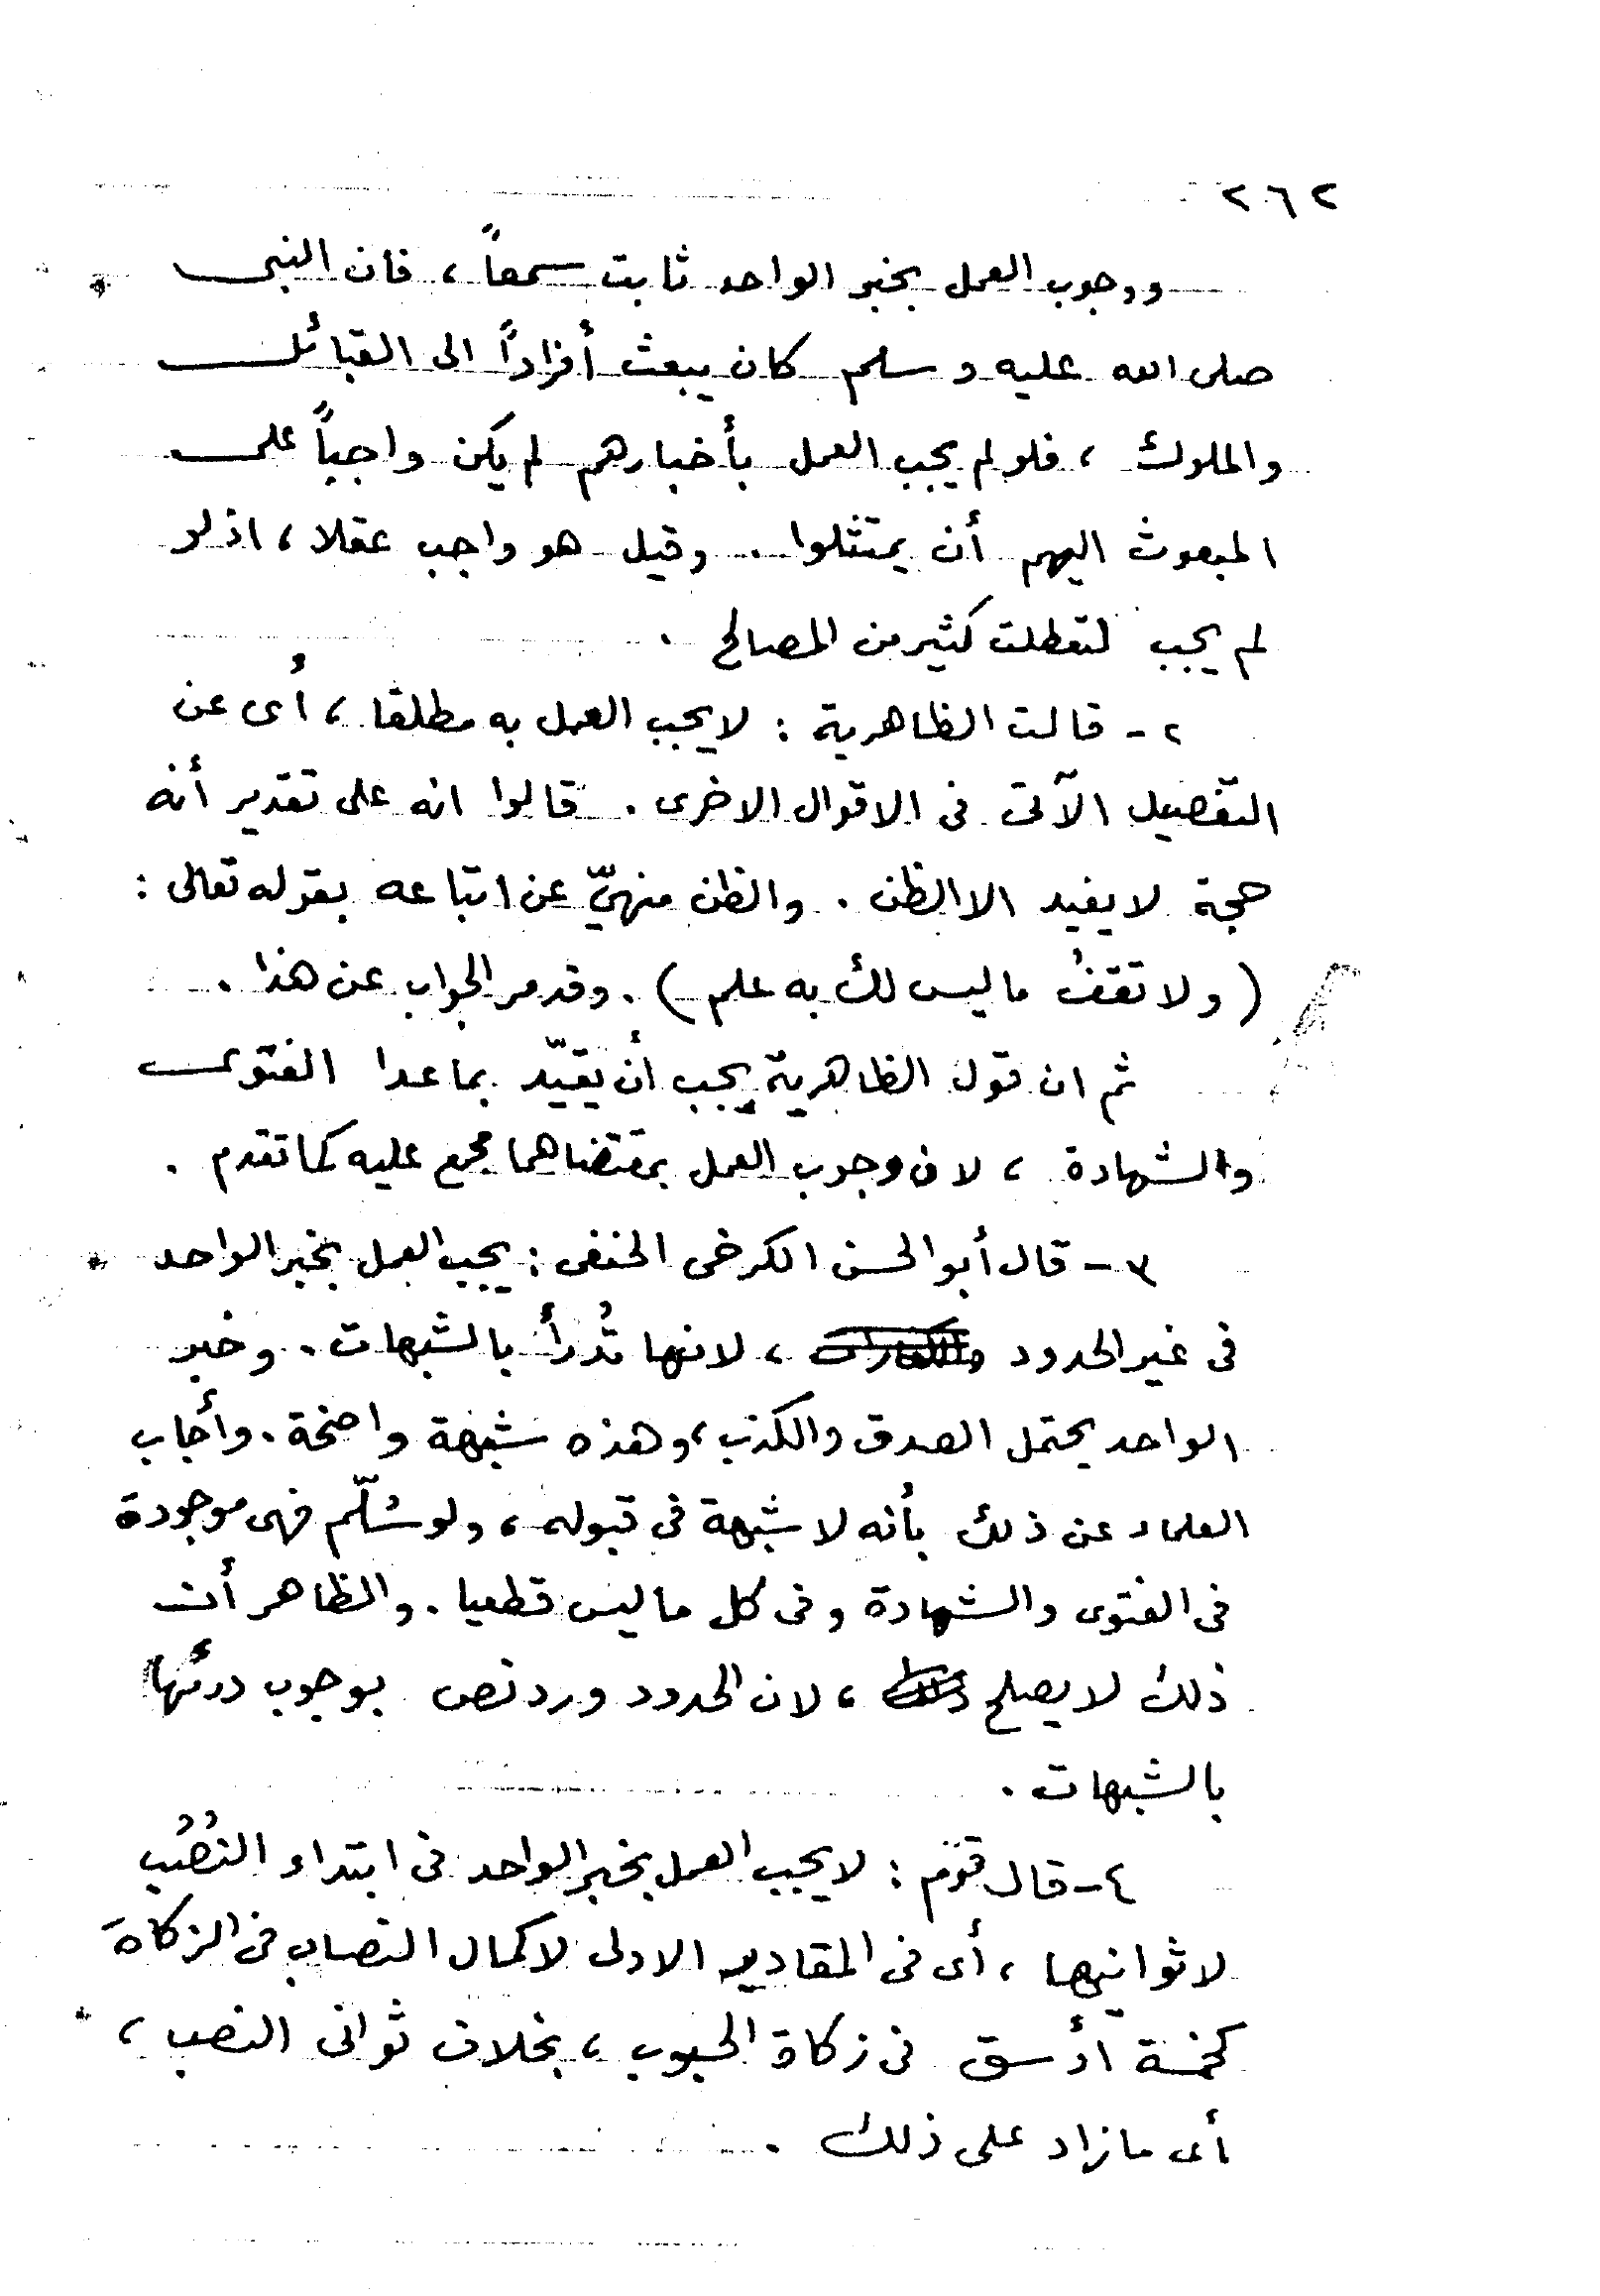 ٢٦٢
ووجوب العمل بخبر الواحد ثابت سمعاً ، فان النبى
صلى الله عليه وسلم كان يبعث أفراداً الى القبائل
والملوك ، فلو لم يجب العمل بأخبارهم لم يكن واجباً على
المبعوث اليهم أن يمتثلوا . وقيل هو واجب عقلا ، اذ لو
لم يجب لتعطلت كثير من المصالح .
٢ - قالت الظاهرية : لا يجب العمل به مطلقا ، أى عن
التفصيل الآتى فى الاقوال الاخرى . قالوا انه على تقدير أنه
حجة لا يفيد الا الظن . والظن منهيّ عن اتباعه بقوله تعالى :
( ولا تقفُ ما ليس لك به علم ) . وقد مر الجواب عن هذا .
ثم ان قول الظاهرية يجب أن يقيّد بما عدا الفتوى
والشهادة ، لان وجوب العمل بمقتضاهما مجمع عليه كما تقدم .
٣ - قال أبو الحسن الكرخى الحنفى : يجب العمل بخبر الواحد
فى غير الحدود ، لانها تُدرأ بالشبهات . وخبر
الواحد يحتمل الصدق والكذب ، وهذه شبهة واضحة . وأجاب
العلماء عن ذلك بأنه لا شبهة فى قبوله ، ولو سُلّم فهى موجودة
فى الفتوى والشهادة وفى كل ما ليس قطعيا . والظاهر أن
ذلك لا يصلح ، لان الحدود ورد نص بوجوب درئها
بالشبهات .
٤ - قال قوم : لا يجب العمل بخبر الواحد فى ابتداء النُصُب
لا ثوانيها ، أى فى المقادير الاولى لاكمال النصاب فى الزكاة
كخمسة أوسق فى زكاة الحبوب ، بخلاف ثوانى النصب ،
أى ما زاد على ذلك .